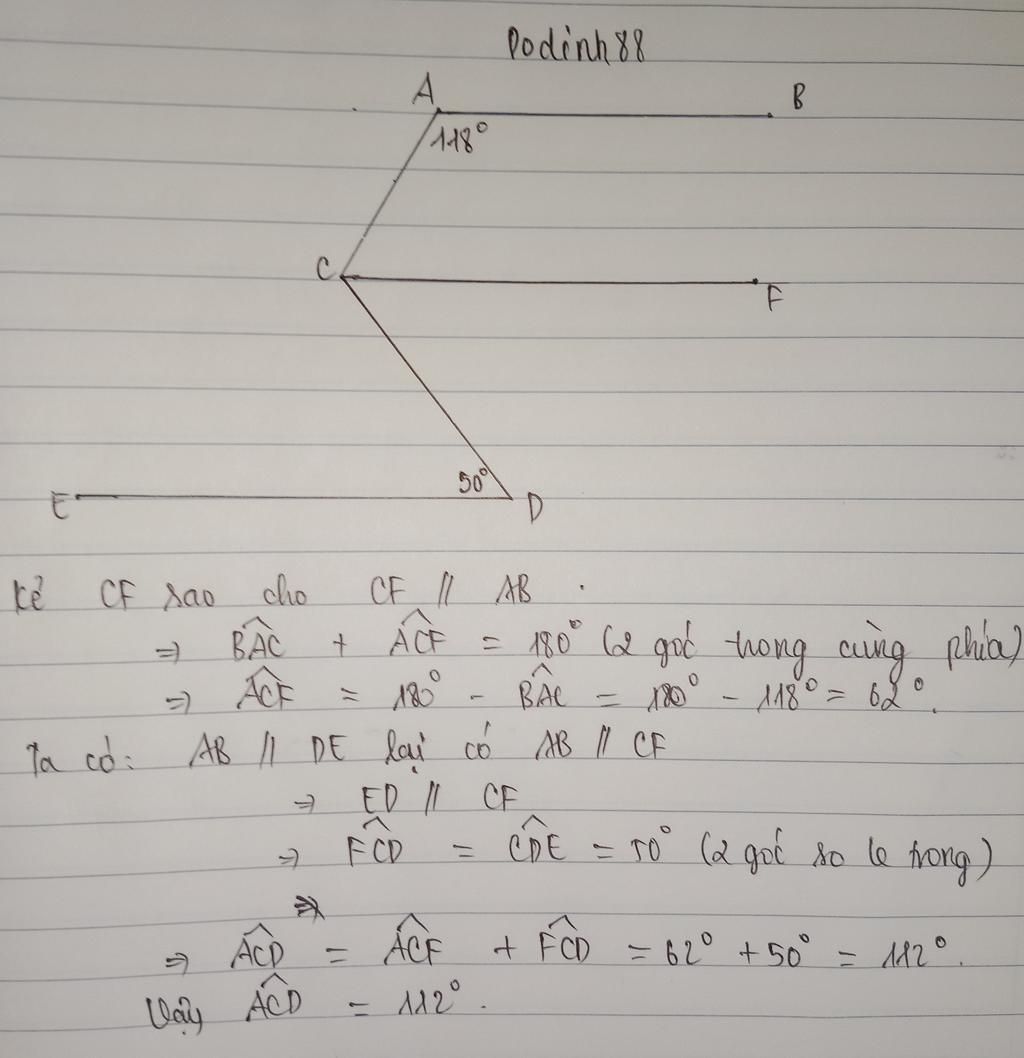 Dodinh88
A
B
118°
C
F
50°
E
D
kẻ CF sao cho CF // AB.
⇒ B̂AC + ÂCF = 180° (2 góc trong cùng phía)
⇒ ÂCF = 180° - B̂AC = 180° - 118° = 62°.
Ta có: AB // DE lại có AB // CF
⇒ ED // CF
⇒ F̂CD = ĈDE = 50° (2 góc so le trong)
⇒ ÂCD = ÂCF + F̂CD = 62° + 50° = 112°.
Vậy ÂCD = 112°.